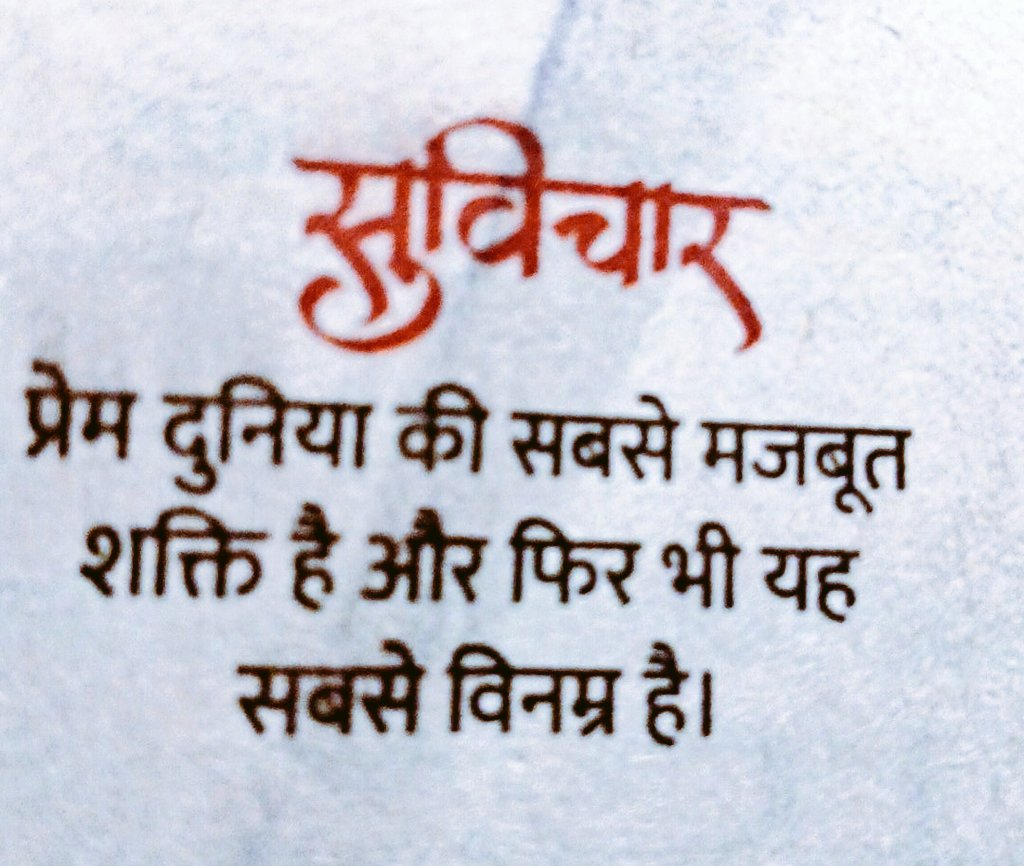 सुविचार
प्रेम दुनिया की सबसे मजबूत
शक्ति है और फिर भी यह
सबसे विनम्र है।